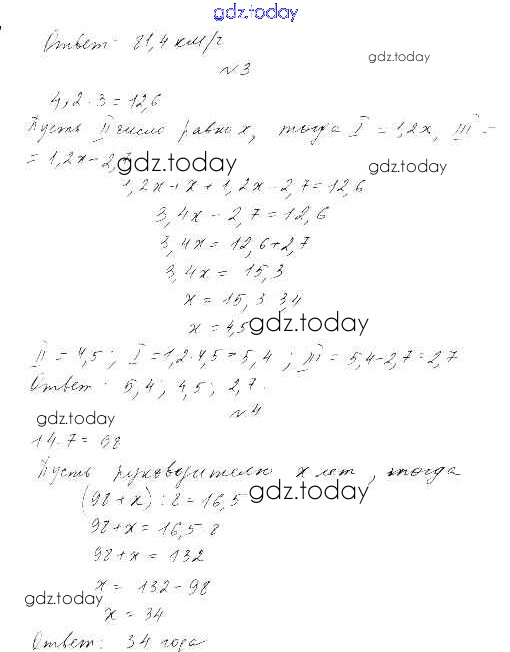 gdz.today
Ответ: 81,4 км/ч
gdz.today
№3
4,2 · 3 = 12,6
Пусть II число равно x, тогда I = 1,2x, III =
= 1,2x - 2,7
gdz.today
gdz.today
1,2x + x + 1,2x - 2,7 = 12,6
3,4x - 2,7 = 12,6
3,4x = 12,6 + 2,7
3,4x = 15,3
x = 15,3 : 3,4
x = 4,5
gdz.today
II = 4,5; I = 1,2 · 4,5 = 5,4; III = 5,4 - 2,7 = 2,7
Ответ: 5,4; 4,5; 2,7.
№4
gdz.today
14 · 7 = 98
Пусть руководителю x лет, тогда
(98 + x) : 8 = 16,5
gdz.today
98 + x = 16,5 · 8
98 + x = 132
x = 132 - 98
gdz.today
x = 34
Ответ: 34 года